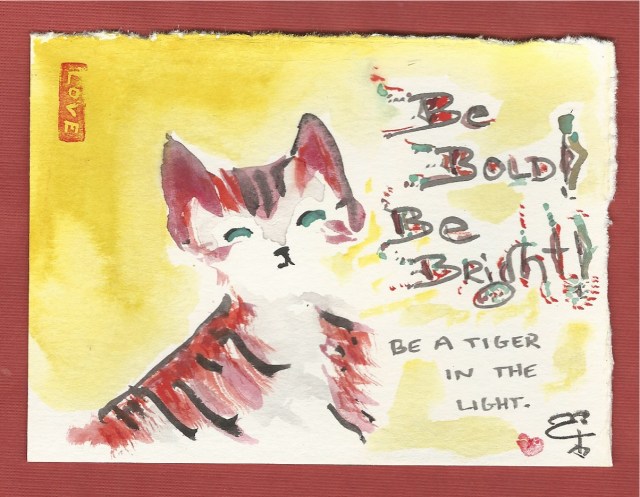 LOVE
Be
BOLD!
Be
BRight!
BE A TIGER
IN THE
LIGHT.